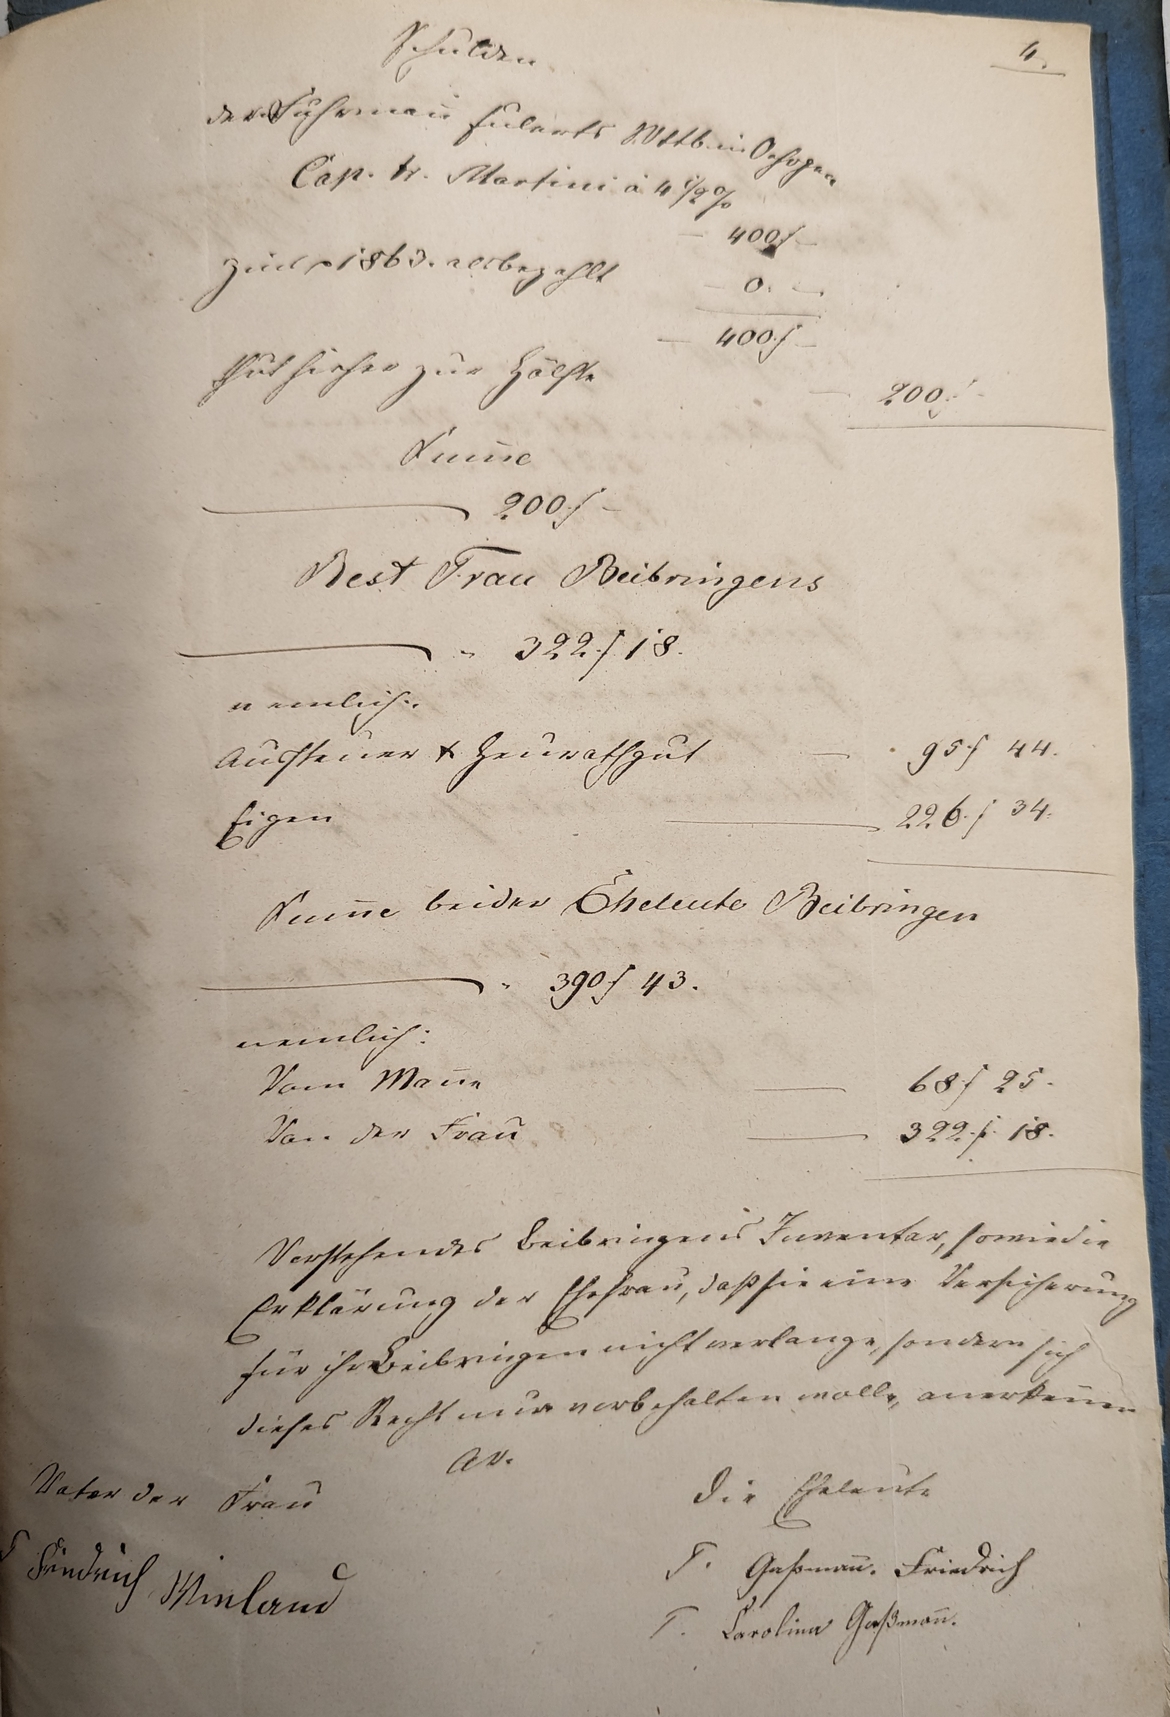 4.
Schulden.
der Fuhrmann Eulerts Wttb. in
Cap. tr. Martini à 4 1/2 %
— 400 f —
Zins p 1863. als bezahlt
— 0. —
— 400 f —
thut hieher zur Hälfte
— 200 f. —
Sum̄e
200 f —
Rest Frau Beibringens
" 322 f 18.
nemlich:
Aussteuer & Heurathgut — 95 f 44.
Eigen — 226 f 34.
Sum̄e beider Eheleute Beibringen
" 390 f 43.
nemlich:
Vom Man̄e — 68 f 25.
Von der Frau — 322 f 18.
Vorstehendes Beibringens Inventar, sowie die
Erklärung der Ehefrau, daß sie eine Versicherung
für ihr Beibringen nicht verlange, sondern sich
dieses Recht nur vorbehalten wolle, anerken̄en
Vater der Frau
Die Eheleute
T. Gaßman̄. Friedrich
Friedrich
T. Carolina Gaßman̄.